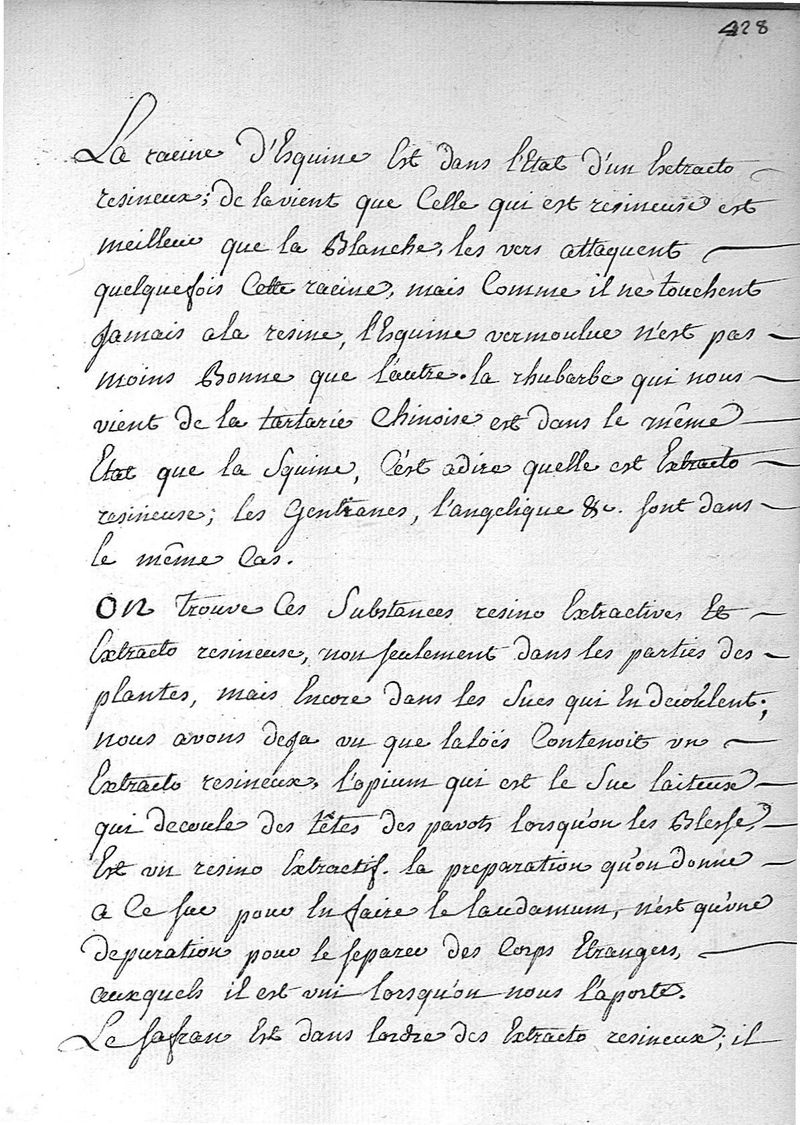 428
La racine d'Esquine Est dans l'Etat d'un Extracto
resineux; de la vient que Celle qui est resineuse est
meilleur que la Blanche, les vers attaquent
quelquefois Cette racine, mais Comme il ne touchent
Jamais a la resine, l'Esquine vermoulue n'est pas
moins Bonne que l'autre. la rhubarbe qui nous
vient de la tartarie Chinoise est dans le même
Etat que la Squine, C'est adire quelle est Extracto
resineuse; les Gentianes, l'angelique &c. sont dans
le même Cas.
On trouve Ces Substances resino Extractives Et
Extracto resineuse, non seulement dans les parties des
plantes, mais Encore dans les Sucs qui En decoullent;
nous avons deja vu que laloës Contenoit un
Extracto resineux, l'opium qui est le Suc laiteux
qui decoule des têtes des pavots lorsqu'on les Blesse,
Est un resino Extractif. la preparation qu'on donne
a Ce suc pour En faire le laudamum, n'est qu'une
depuration pour le separer des Corps Etrangers,
auxquels il est uni lorsqu'on nous l'aporte.
Le safran Est dans lordre des Extracto resineux; il